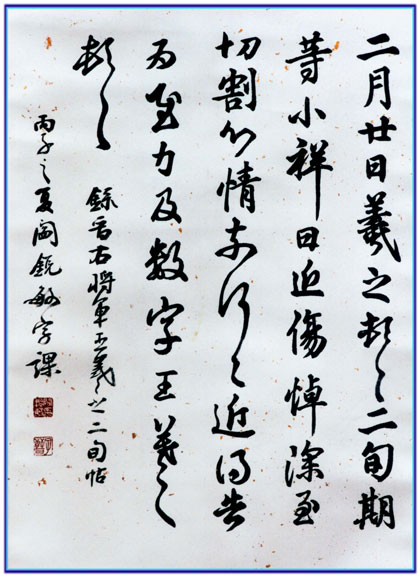 二月廿日羲之頓首二旬期
等小祥日近傷悼深至
切割心情奈何々近得告
為慰力及数字王羲之
頓首
錄晉右將軍王羲之二旬帖
丙子之夏闞銳敏字課